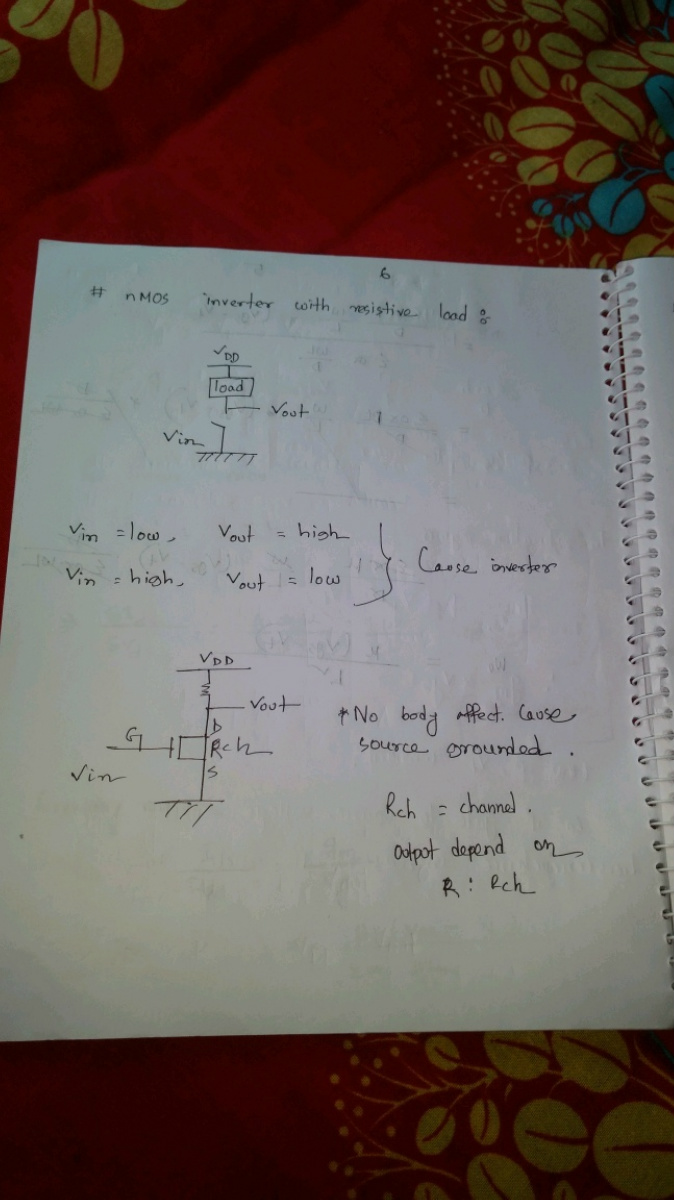 6
# nMOS inverter with resistive load :
VDD
load
Vout
Vin
Vin = low, Vout = high
Vin = high, Vout = low
Cause inverter
VDD
Vout
D
G
Rch
S
Vin
* No body affect. Cause
source grounded.
Rch = channel.
Output depend on
R : Rch